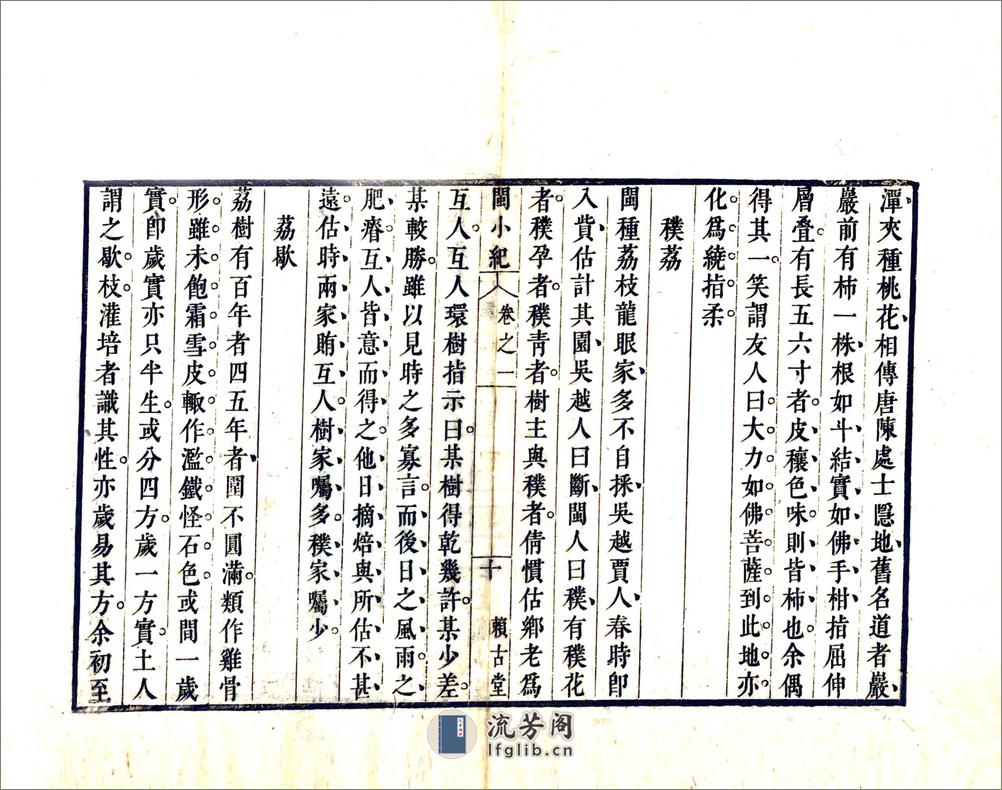 潭夾種桃花相傳唐陳處士隱地舊名道者巖
巖前有柿一株根如斗結實如佛手柑指屈伸
層叠有長五六寸者皮穰色味則皆柿也余偶
得其一笑謂友人曰大力如佛菩薩到此地亦
化為繞指柔
穙荔
閩種荔枝龍眼家多不自採吳越賈人春時卽
入貲估計其園吳越人曰斷閩人曰穙有穙花
者穙孕者穙青者樹主與穙者倩慣估鄉老為
閩小紀 卷之一 十 賴古堂
互人互人環樹指示曰某樹得乾幾許某少差
某較勝雖以見時之多寡言而後日之風雨之
肥瘠互人皆意而得之他日摘焙與所估不甚
遠估時兩家賄互人樹家囑多穙家囑少
荔歇
荔樹有百年者四五年者圍不圓滿類作雞骨
形雖未飽霜雪皮輙作濫鐵怪石色或間一歲
實卽歲實亦只半生或分四方歲一方實土人
謂之歇枝灌培者識其性亦歲易其方余初至
流芳阁
lfglib.cn